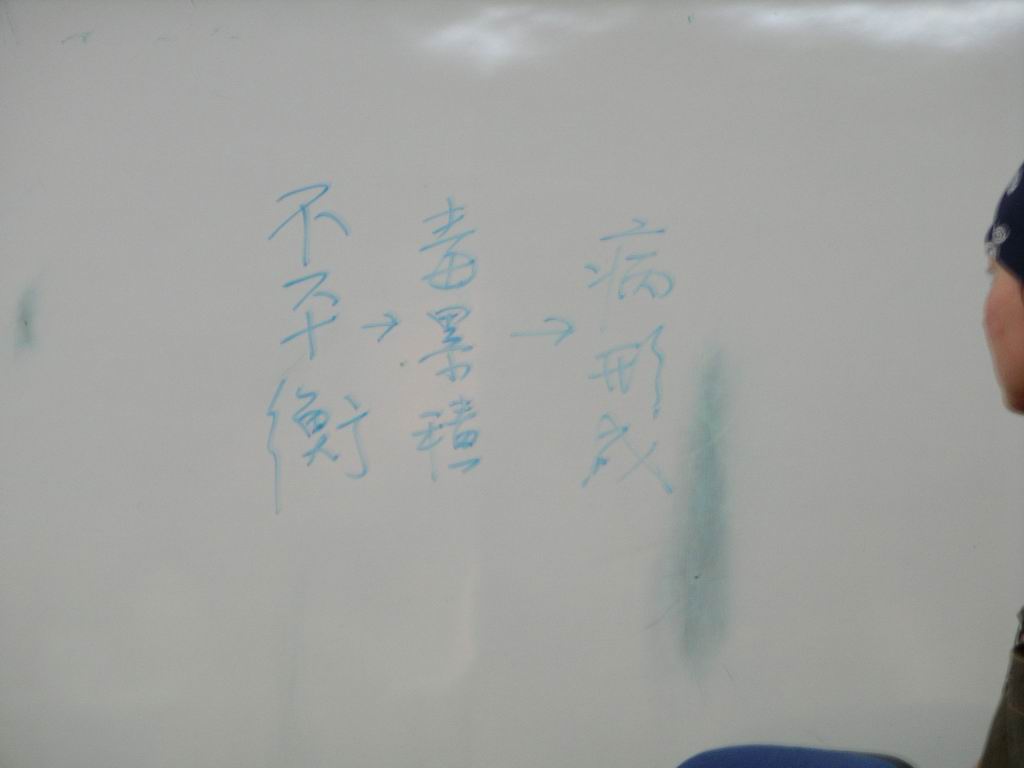 不平衡
→
毒累積
→
病形成